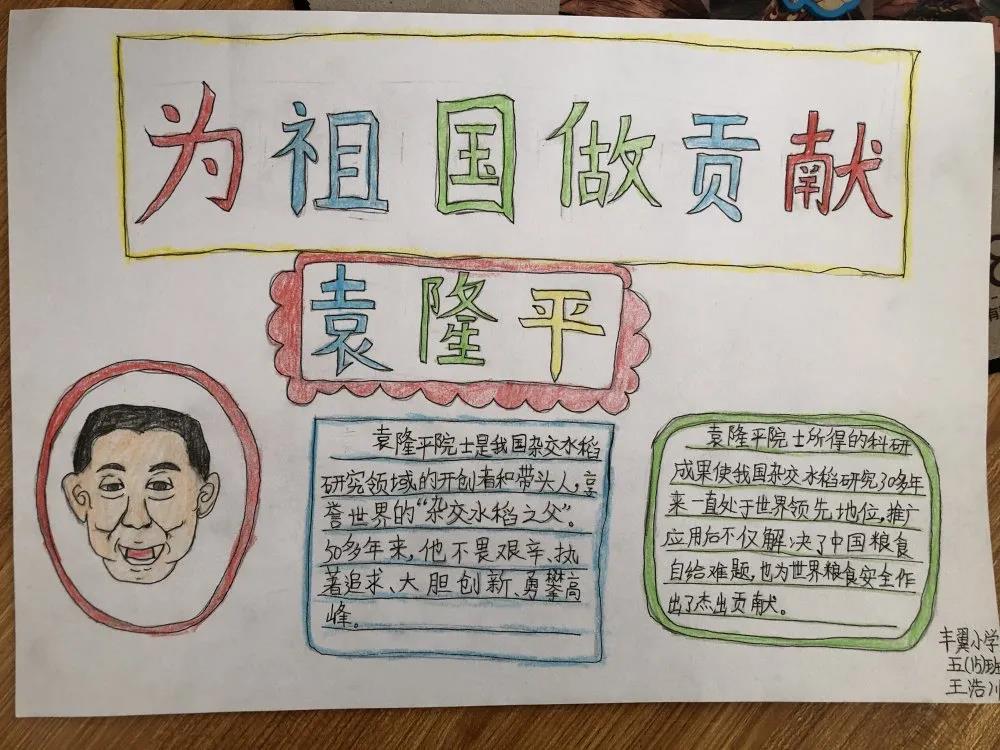 为祖国做贡献
袁隆平
袁隆平院士是我国杂交水稻
研究领域的开创者和带头人,享
誉世界的“杂交水稻之父”。
50多年来,他不畏艰辛、执
著追求、大胆创新、勇攀高
峰。
袁隆平院士所得的科研
成果使我国杂交水稻研究30多年
来一直处于世界领先地位,推广
应用后不仅解决了中国粮食
自给难题,也为世界粮食安全作
出了杰出贡献。
丰翼小学
五(15)班
王浩川